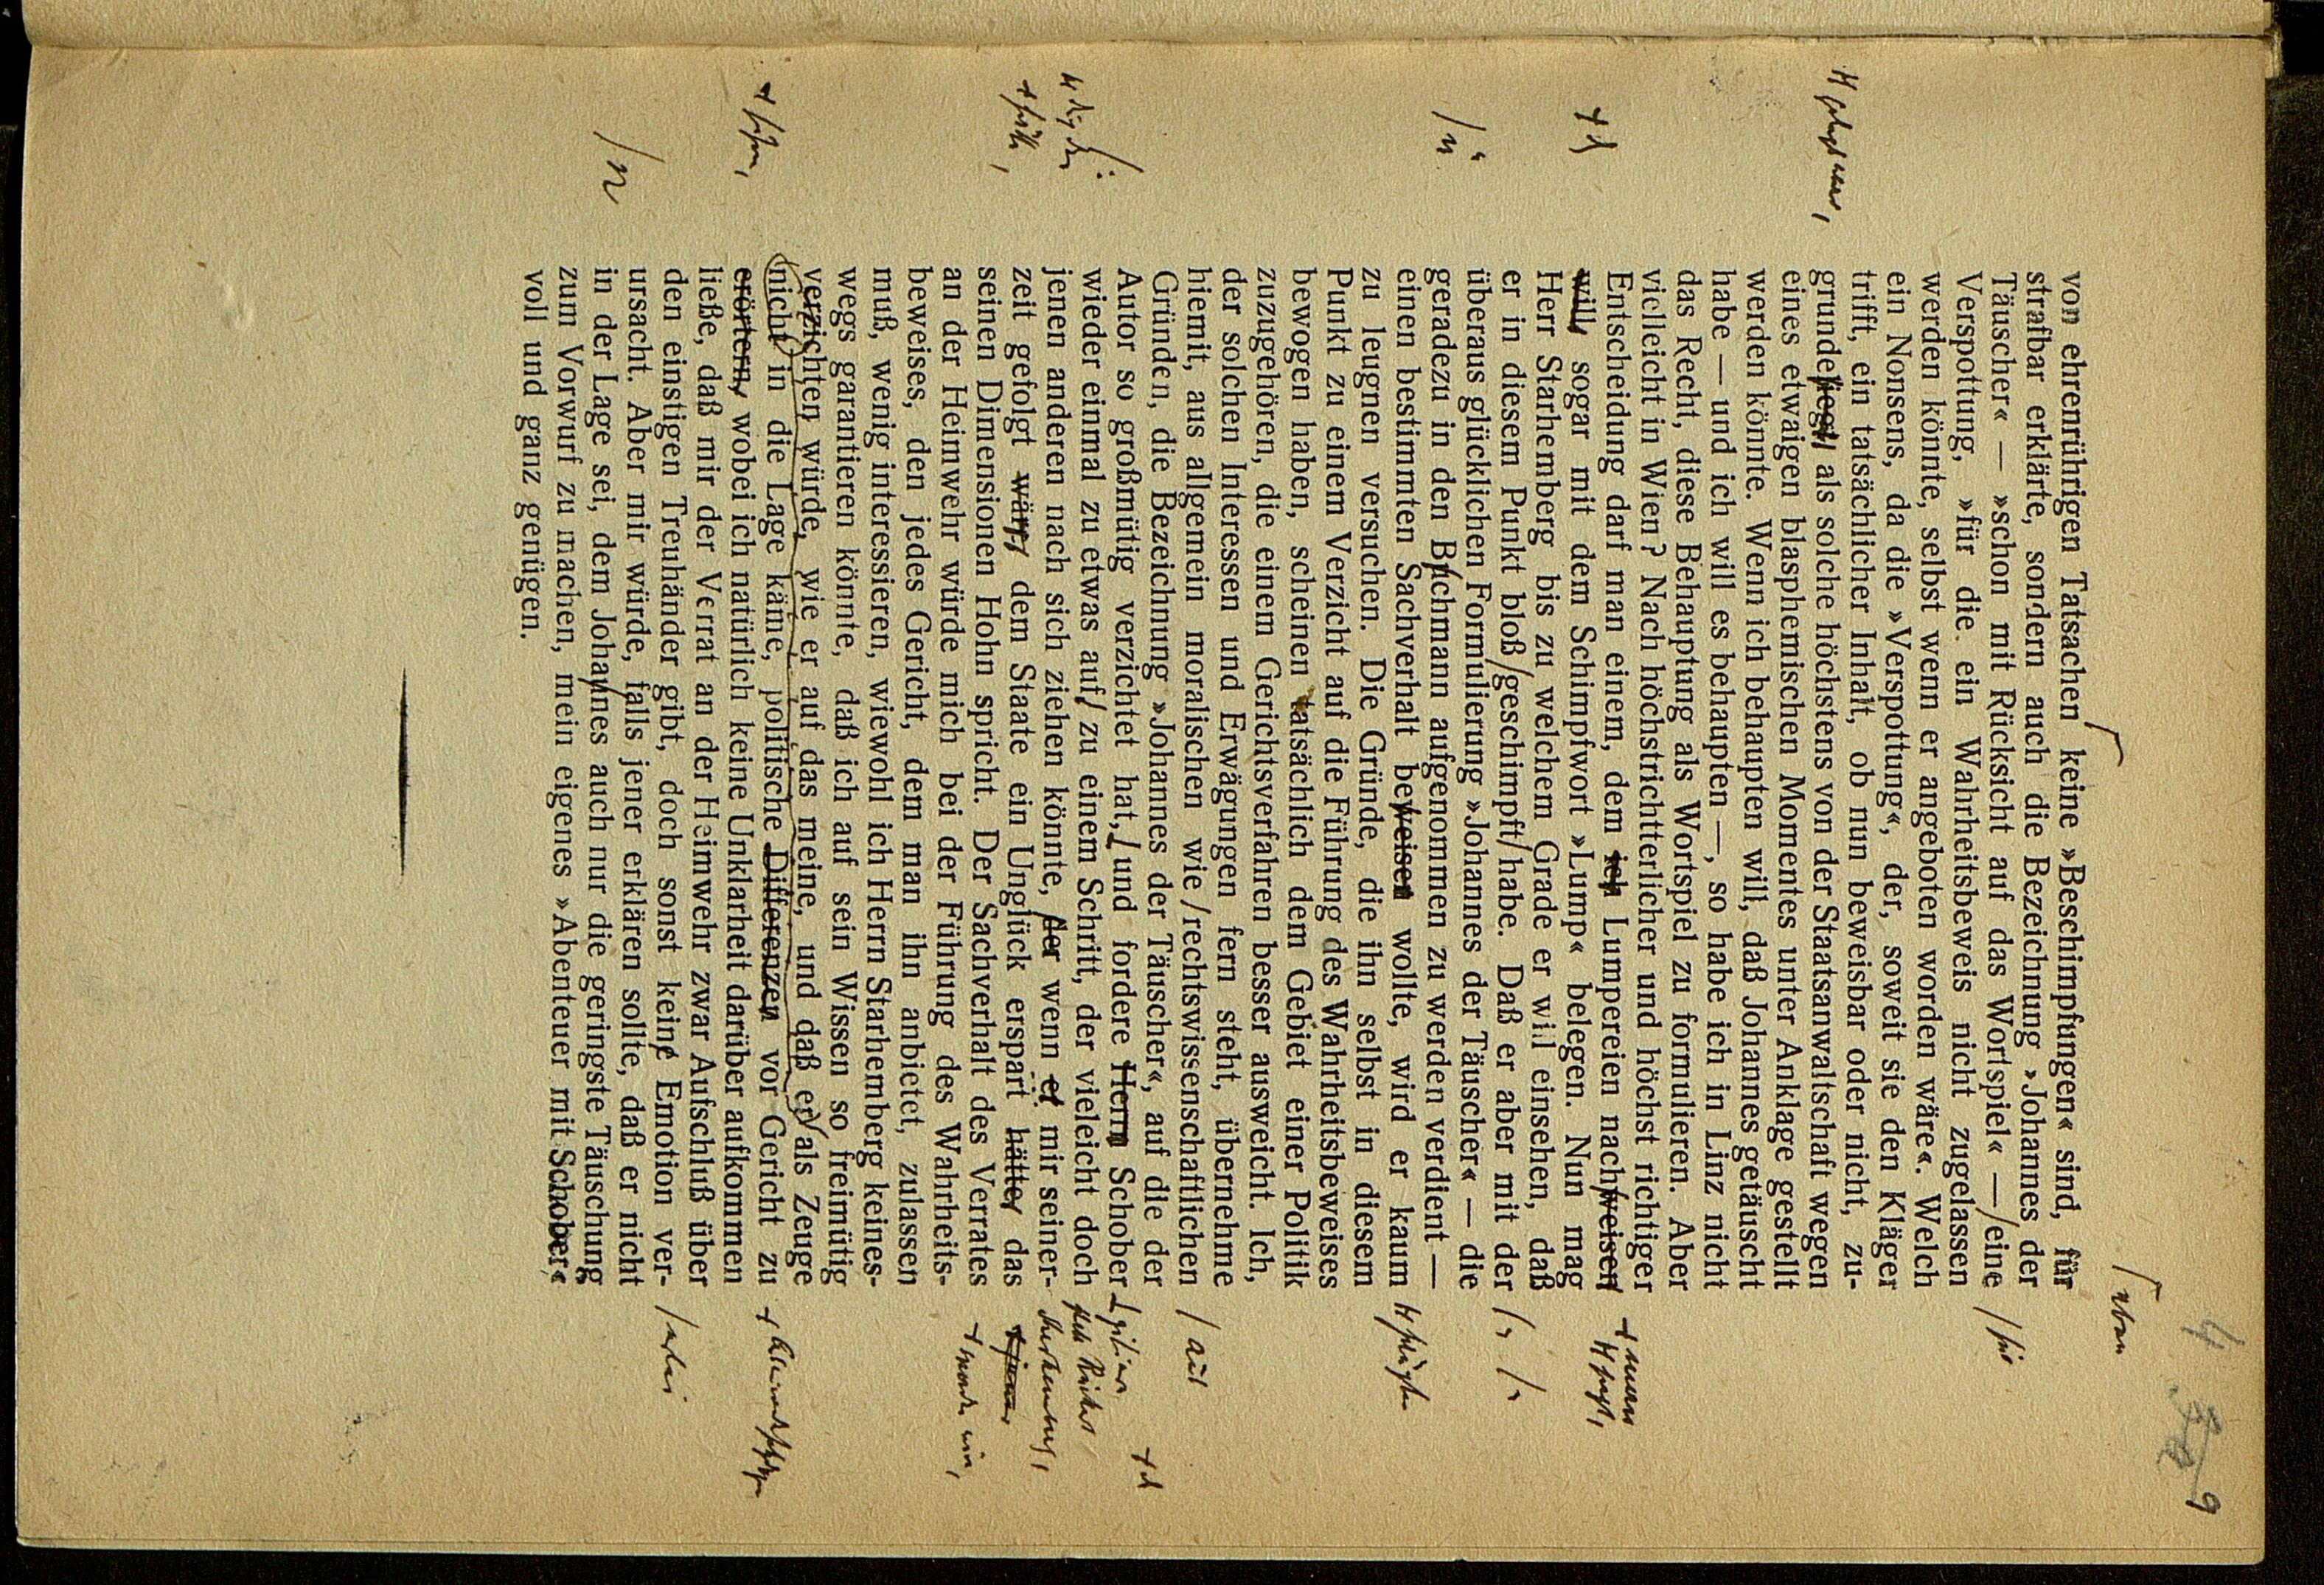 9
von ehrenrührigen Tatsachen keine »Beschimpfungen« sind, für
strafbar erklärte, sondern auch die Bezeichnung »Johannes der
Täuscher« — »schon mit Rücksicht auf das Wortspiel« — eine
Verspottung, »für die ein Wahrheitsbeweis nicht zugelassen
werden könnte, selbst wenn er angeboten worden wäre«. Welch
ein Nonsens, da die »Verspottung«, der, soweit sie den Kläger
trifft, ein tatsächlicher Inhalt, ob nun beweisbar oder nicht, zu-
grunde liegt, als solche höchstens von der Staatsanwaltschaft wegen
eines etwaigen blasphemischen Momentes unter Anklage gestellt
werden könnte. Wenn ich behaupten will, daß Johannes getäuscht
habe — und ich will es behaupten —, so habe ich in Linz nicht
das Recht, diese Behauptung als Wortspiel zu formulieren. Aber
vielleicht in Wien? Nach höchstrichtterlicher und höchst richtiger
Entscheidung darf man einem, dem ich Lumpereien nachweisen
will, sogar mit dem Schimpfwort »Lump« belegen. Nun mag
Herr Starhemberg bis zu welchem Grade er will einsehen, daß
er in diesem Punkt bloß geschimpft habe. Daß er aber mit der
überaus glücklichen Formulierung »Johannes der Täuscher« — die
geradezu in den Büchmann aufgenommen zu werden verdient —
einen bestimmten Sachverhalt beweisen wollte, wird er kaum
zu leugnen versuchen. Die Gründe, die ihn selbst in diesem
Punkt zu einem Verzicht auf die Führung des Wahrheitsbeweises
bewogen haben, scheinen tatsächlich dem Gebiet einer Politik
zuzugehören, die einem Gerichtsverfahren besser ausweicht. Ich,
der solchen Interessen und Erwägungen fern steht, übernehme
hiemit, aus allgemein moralischen wie rechtswissenschaftlichen
Gründen, die Bezeichnung »Johannes der Täuscher«, auf die der
Autor so großmütig verzichtet hat, und fordere Herrn Schober
wieder einmal zu etwas auf, zu einem Schritt, der vieleicht doch
jenen anderen nach sich ziehen könnte, der wenn er mir seiner-
zeit gefolgt wäre, dem Staate ein Unglück erspart hätte, das
seinen Dimensionen Hohn spricht. Der Sachverhalt des Verrates
an der Heimwehr würde mich bei der Führung des Wahrheits-
beweises, den jedes Gericht, dem man ihn anbietet, zulassen
muß, wenig interessieren, wiewohl ich Herrn Starhemberg keines-
wegs garantieren könnte, daß ich auf sein Wissen so freimütig
verzichten würde, wie er auf das meine, und daß er als Zeuge
nicht in die Lage käme, politische Differenzen vor Gericht zu
erörtern, wobei ich natürlich keine Unklarheit darüber aufkommen
ließe, daß mir der Verrat an der Heimwehr zwar Aufschluß über
den einstigen Treuhänder gibt, doch sonst keine Emotion ver-
ursacht. Aber mir würde, falls jener erklären sollte, daß er nicht
in der Lage sei, dem Johannes auch nur die geringste Täuschung
zum Vorwurf zu machen, mein eigenes »Abenteuer mit Schober«
voll und ganz genügen.